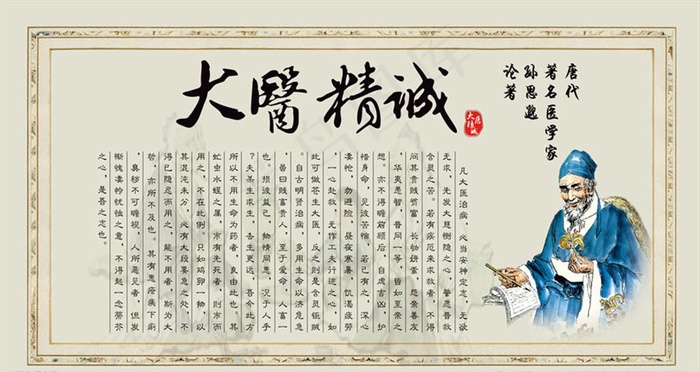 大醫精誠
大医精诚
唐代
著名医学家
孙思邈
论著
凡大医治病，必当安神定志，无欲
无求，先发大慈恻隐之心，誓愿普救
含灵之苦。若有疾厄来求救者，不得
问其贵贱贫富，长幼妍蚩，怨亲善友
，华夷愚智，普同一等，皆如至亲之
想。亦不得瞻前顾后，自虑吉凶，护
惜身命。见彼苦恼，若己有之，深心
凄怆。勿避险、昼夜寒暑、饥渴疲劳
，一心赴救，无作工夫行迹之心。如
此可做苍生大医，反之则是含灵钜贼
。自古明贤治病，多用生命以济危急
，虽曰贱畜贵人，至于爱命，人畜一
也。损彼益己，物情同患，况于人乎
？夫杀生求生，去生更远。吾今此方
所以不用生命为药者，良由此也。其
虻虫水蛭之属，市有先死者，则市而
用之，不在此例。只如鸡卵一物，以
其混沌未分，必有大段要急之处，不
得已隐忍而用之。能不用者，斯为大
哲，亦所不及也。其有患疮痍下痢
，臭秽不可瞻视，人所恶见者，但发
惭愧凄怜忧恤之意，不得起一念蒂芥
之心，是吾之志也。